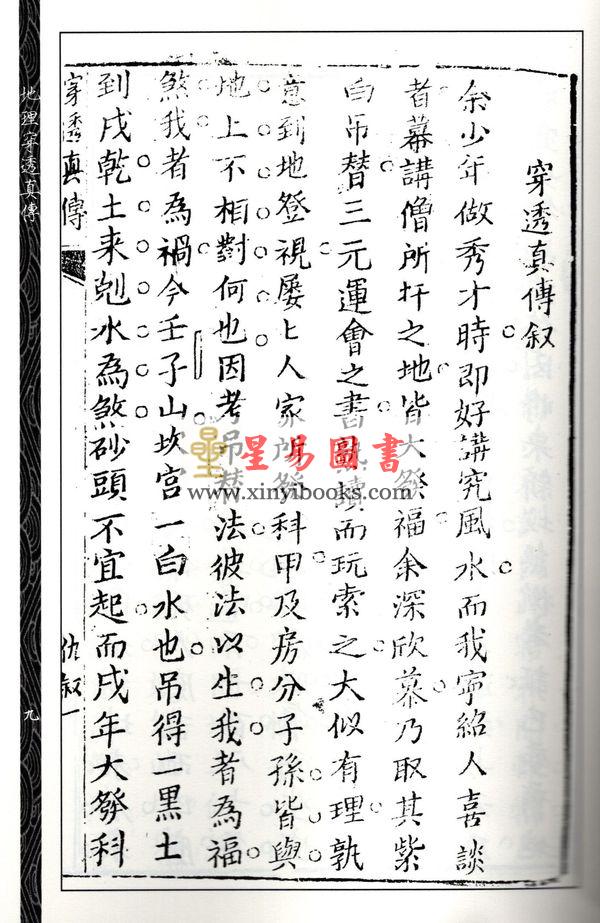 穿透真傳叙
余少年做秀才時即好講究風水而我寧紹人喜談
者幕講僧所扦之地皆大發福余深欣慕乃取其紫
白吊替三元運會之書熟讀而玩索之大似有理孰
意到地登視屡匕人家所發科甲及房分子孫皆與
地上不相對何也因考吊替法彼法以生我者為福
煞我者為禍今壬子山坎宮一白水也吊得二黑土
到戌乾土来剋水為煞砂頭不宜起而戌年大發科
穿透真傳
仇叙一
地理穿透真傳
九
星易圖書
www.xinyibooks.com